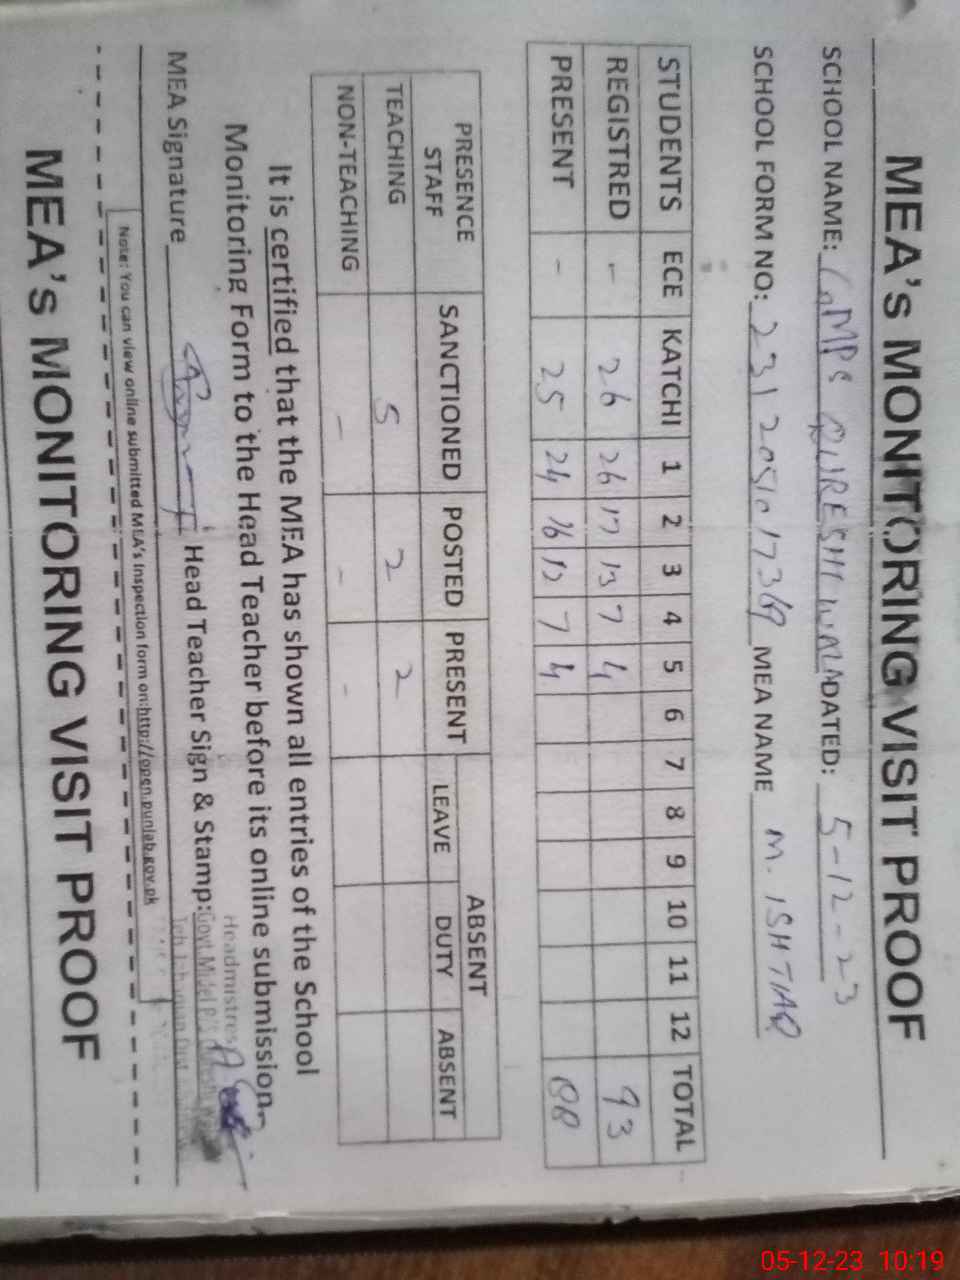 MEA's MONITORING VISIT PROOF
SCHOOL NAME: GMPS QURESHI WALA DATED: 5-12-23
SCHOOL FORM NO: MEA NAME M. ISHTIAQ
STUDENTS ECE KATCHI 1 2 3 4 5 6 7 8 9 10 11 12 TOTAL
REGISTRED - 26 26 17 13 7 4 93
PRESENT - 25 24 16 12 7 4 88
PRESENCE STAFF SANCTIONED POSTED PRESENT ABSENT
LEAVE DUTY ABSENT
TEACHING 5 2 2
NON-TEACHING - - -
It is certified that the MEA has shown all entries of the School
Monitoring Form to the Head Teacher before its online submission
MEA Signature Head Teacher Sign & Stamp: Headmistress
Govt. Model P/S
Note: You can view online submitted MEA's Inspection form on:http://open.punjab.gov.pk
MEA's MONITORING VISIT PROOF
05-12-23 10:19